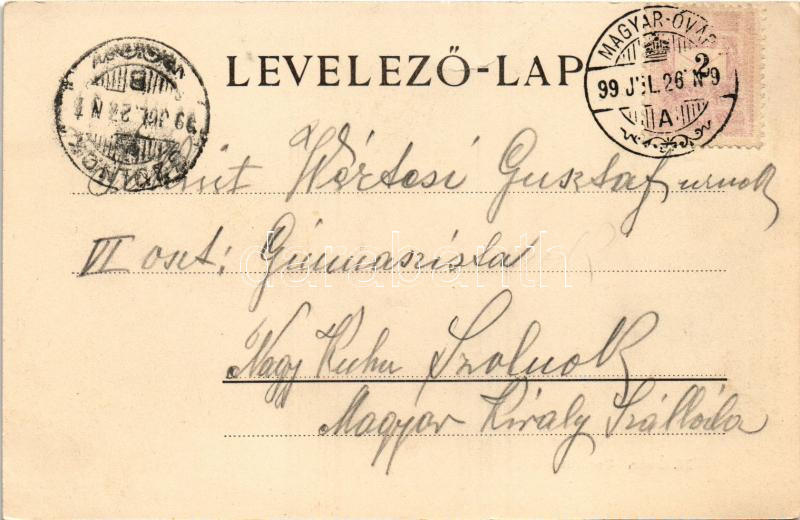 LEVELEZŐ-LAP
MAGYAR-ÓVÁR
99 JUL. 26 N 9
A
2
SZOLNOK
99 JUL. 27 N 1
Wértesi Gusztaf urnak
VII oszt: Gimnazista
Nagy Kuhn Szolnok
Magyar Király Szálloda
darabanth